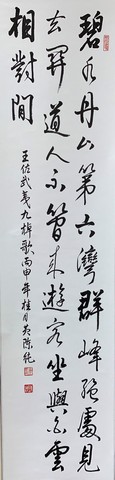 碧水丹山第六灣群峰絕處見
玄関道人不管来遊客坐與白雲
相對閒
王佐武夷九棹歌丙申年桂月陳純